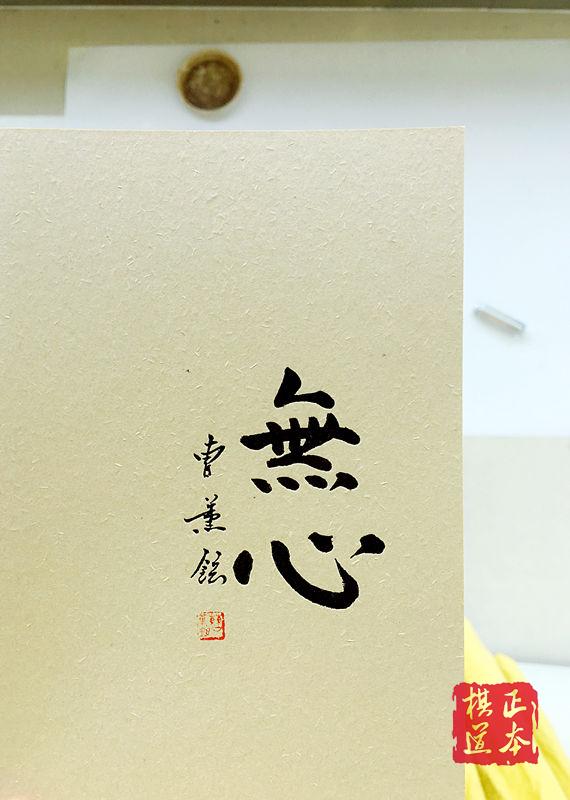 無心
曺薰鉉
正本
棋道